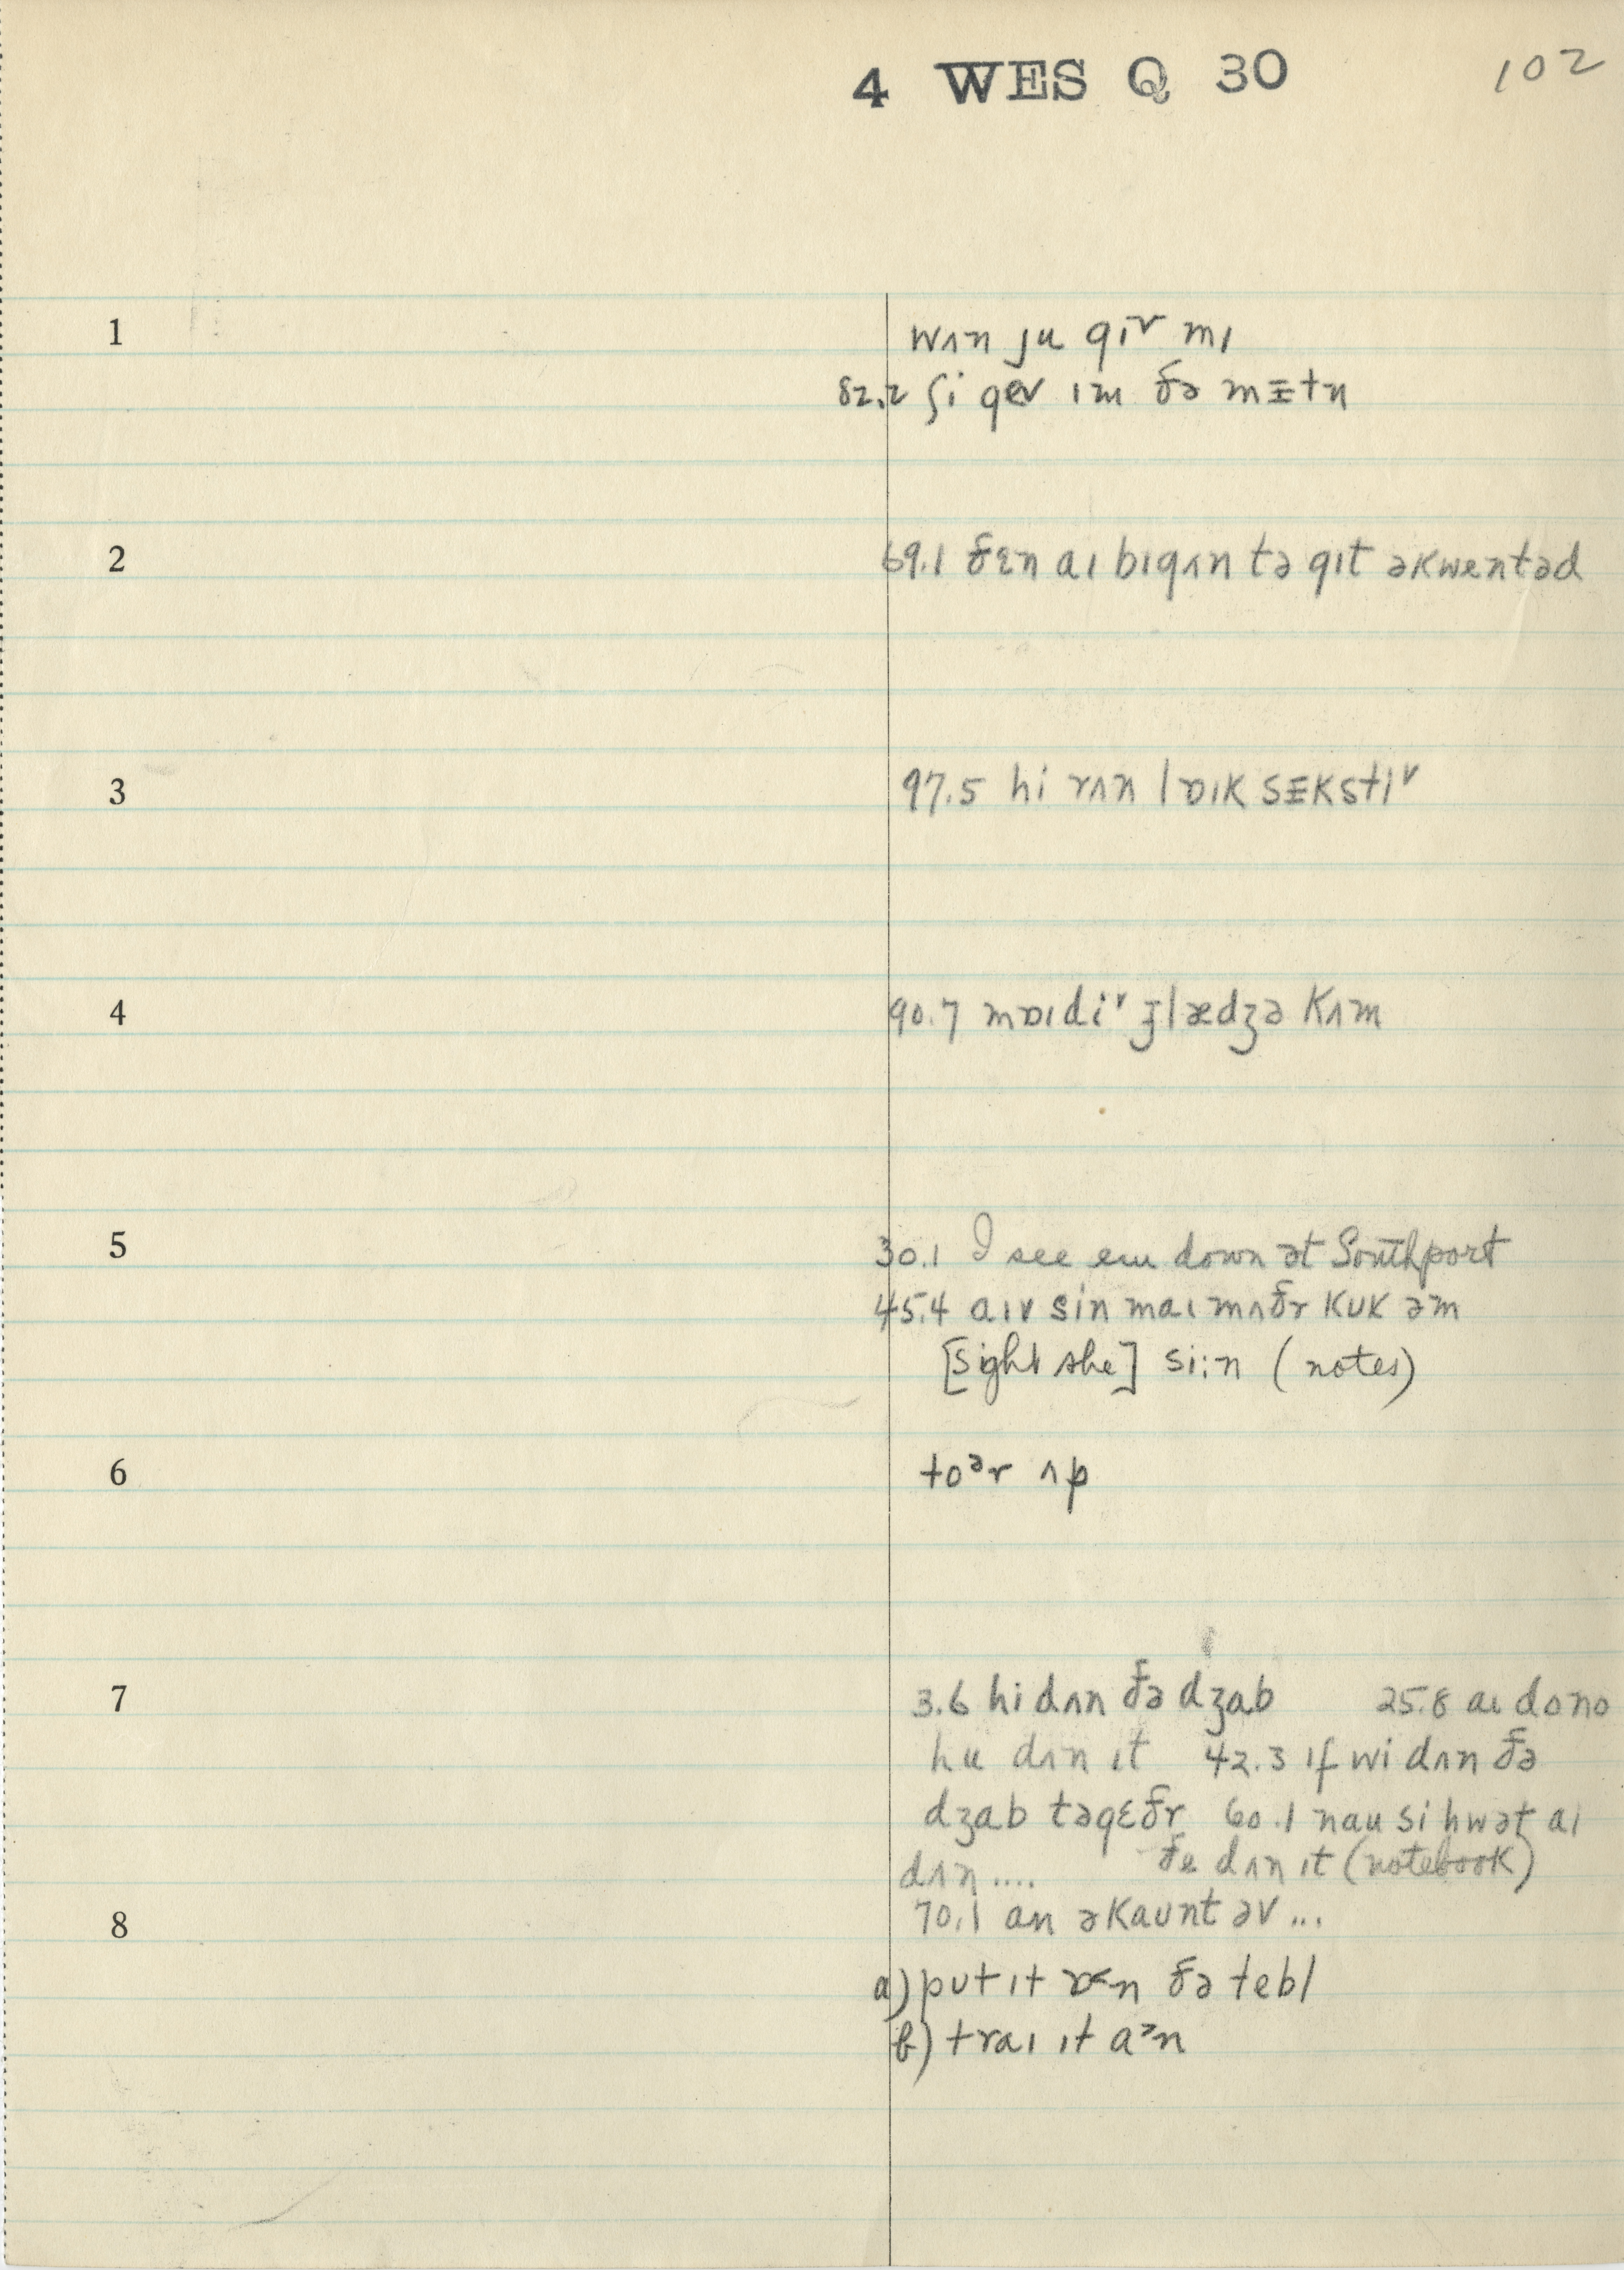 4 WES Q 30 102
1 wʌn ju gɪv mɪ
82.2 ʃi gev ɪm ðə mɪtn
2 69.1 ðɛn aɪ bɪgʌn tə gɪt əkwentəd
3 97.5 hi rʌn lɒɪk sɛkstɪv
4 90.7 kʌm
5 30.1 I see em down ət Southport
45.4 aɪv sin maɪ mʌðr kuk əm
[sight she] si:n (notes)
6 toᵊr ʌp
7 3.6 hi dʌn ðə dʒab 25.8 aɪ dono
hu dʌn ɪt 42.3 ɪf wi dʌn ðə
dʒab təgɛðr 60.1 nau si hwət aɪ
dʌn .... ðe dʌn ɪt (notebook)
8 70.1 an əkaunt əv ...
a) put ɪt ɒ˂n ðə tebl
b) traɪ ɪt a˃n